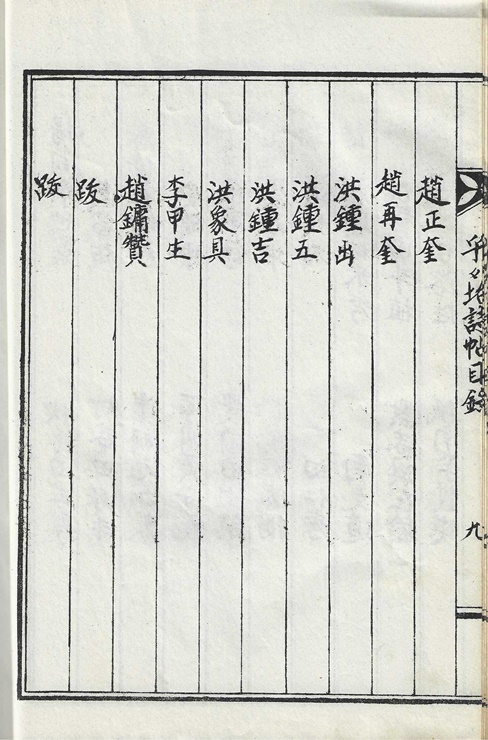 趙正奎
趙再奎
洪鍾出
洪鍾五
洪鍾吉
洪象具
李甲生
趙鏞贊
跋
跋
詩帖目錄
九